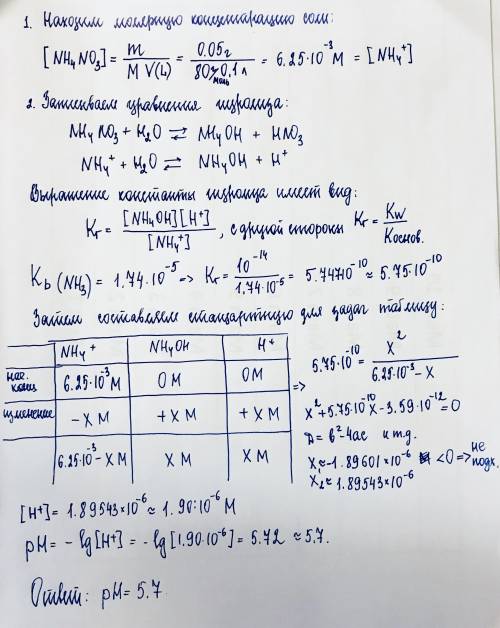 1. Находим молярную концентрацию соли:
[NH4NO3] = m / M V(L) = 0.05г / 80 г/моль · 0,1 л = 6.25·10⁻³ M = [NH4⁺]
2. Записываем уравнения гидролиза:
NH4NO3 + H2O ⇄ NH4OH + HNO3
NH4⁺ + H2O ⇄ NH4OH + H⁺
Выражение константы гидролиза имеет вид:
Kг = [NH4OH][H⁺] / [NH4⁺] , с другой стороны Kг = Kw / Kоснов.
Kb (NH3) = 1.74·10⁻⁵ => Kг = 10⁻¹⁴ / 1,74·10⁻⁵ = 5.747·10⁻¹⁰ ≈ 5.75·10⁻¹⁰
Затем составляем стандартную для задач таблицу:
NH4⁺ NH4OH H⁺
нач. конц 6.25·10⁻³ M 0 M 0 M
изменение – X M + X M + X M
6.25·10⁻³ – X M X M X M
=> 5.75·10⁻¹⁰ = X² / 6.25·10⁻³ – X
X² + 5.75·10⁻¹⁰X – 3.59·10⁻¹² = 0
D = b² – 4ac и т.д.
X1 ≈ –1.89601×10⁻⁶ <0 => не подх.
X2 ≈ 1.89543×10⁻⁶
[H⁺] = 1.89543×10⁻⁶ ≈ 1.90·10⁻⁶ M
pH = – lg[H⁺] = – lg[1.90·10⁻⁶] = 5.72 ≈ 5.7.
Ответ: pH = 5.7